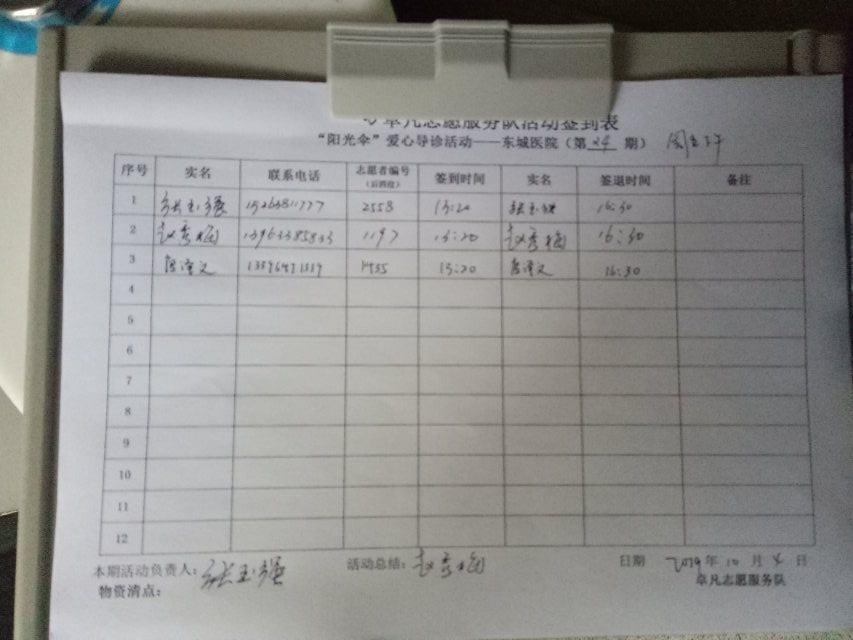 卓凡志愿服务队活动签到表
“阳光伞”爱心导诊活动——东城医院（第24期）
序号 实名 联系电话 志愿者编号（后四位） 签到时间 实名 签退时间 备注
1 张玉强 15263811777 2558 13:20 张玉强 16:30
2 赵秀梅 1197 13:20 赵秀梅 16:30
3 13:20 16:30
4
5
6
7
8
9
10
11
12
本期活动负责人：张玉强 活动总结：赵秀梅 日期 2019年10月 日
物资清点： 卓凡志愿服务队